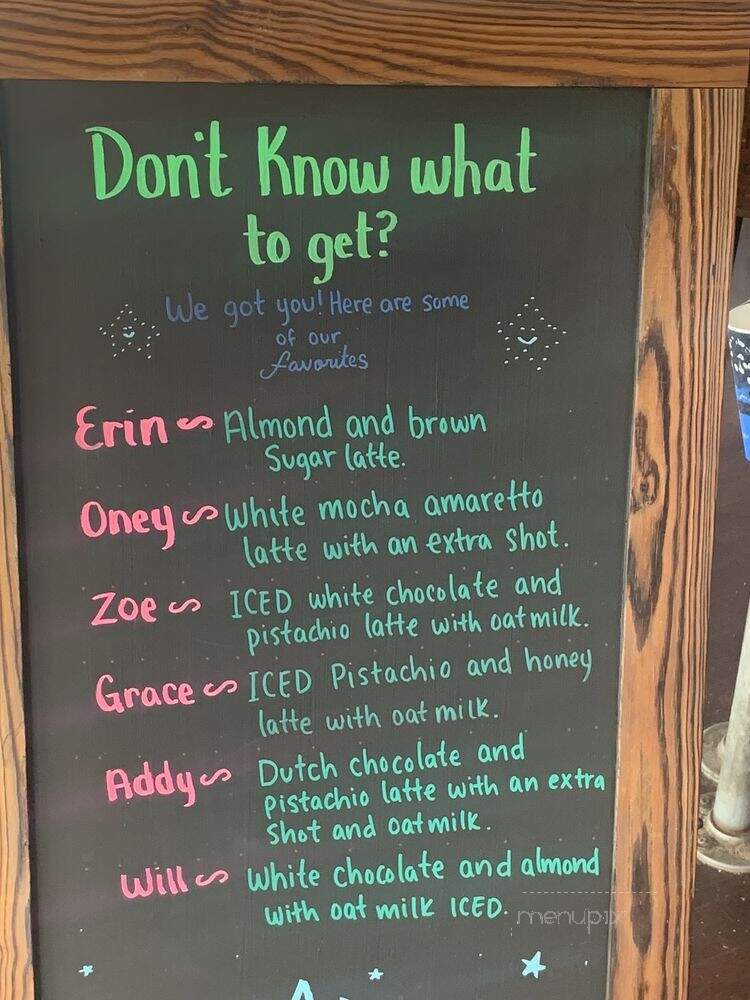 Don't Know what
to get?
We got you! Here are some
of our
favorites
Erin ~ Almond and brown
Sugar latte.
Oney ~ White mocha amaretto
latte with an extra shot.
Zoe ~ ICED white chocolate and
pistachio latte with oatmilk.
Grace ~ ICED Pistachio and honey
latte with oat milk.
Addy ~ Dutch chocolate and
pistachio latte with an extra
shot and oatmilk.
Will ~ White chocolate and almond
with oat milk ICED.
menupix